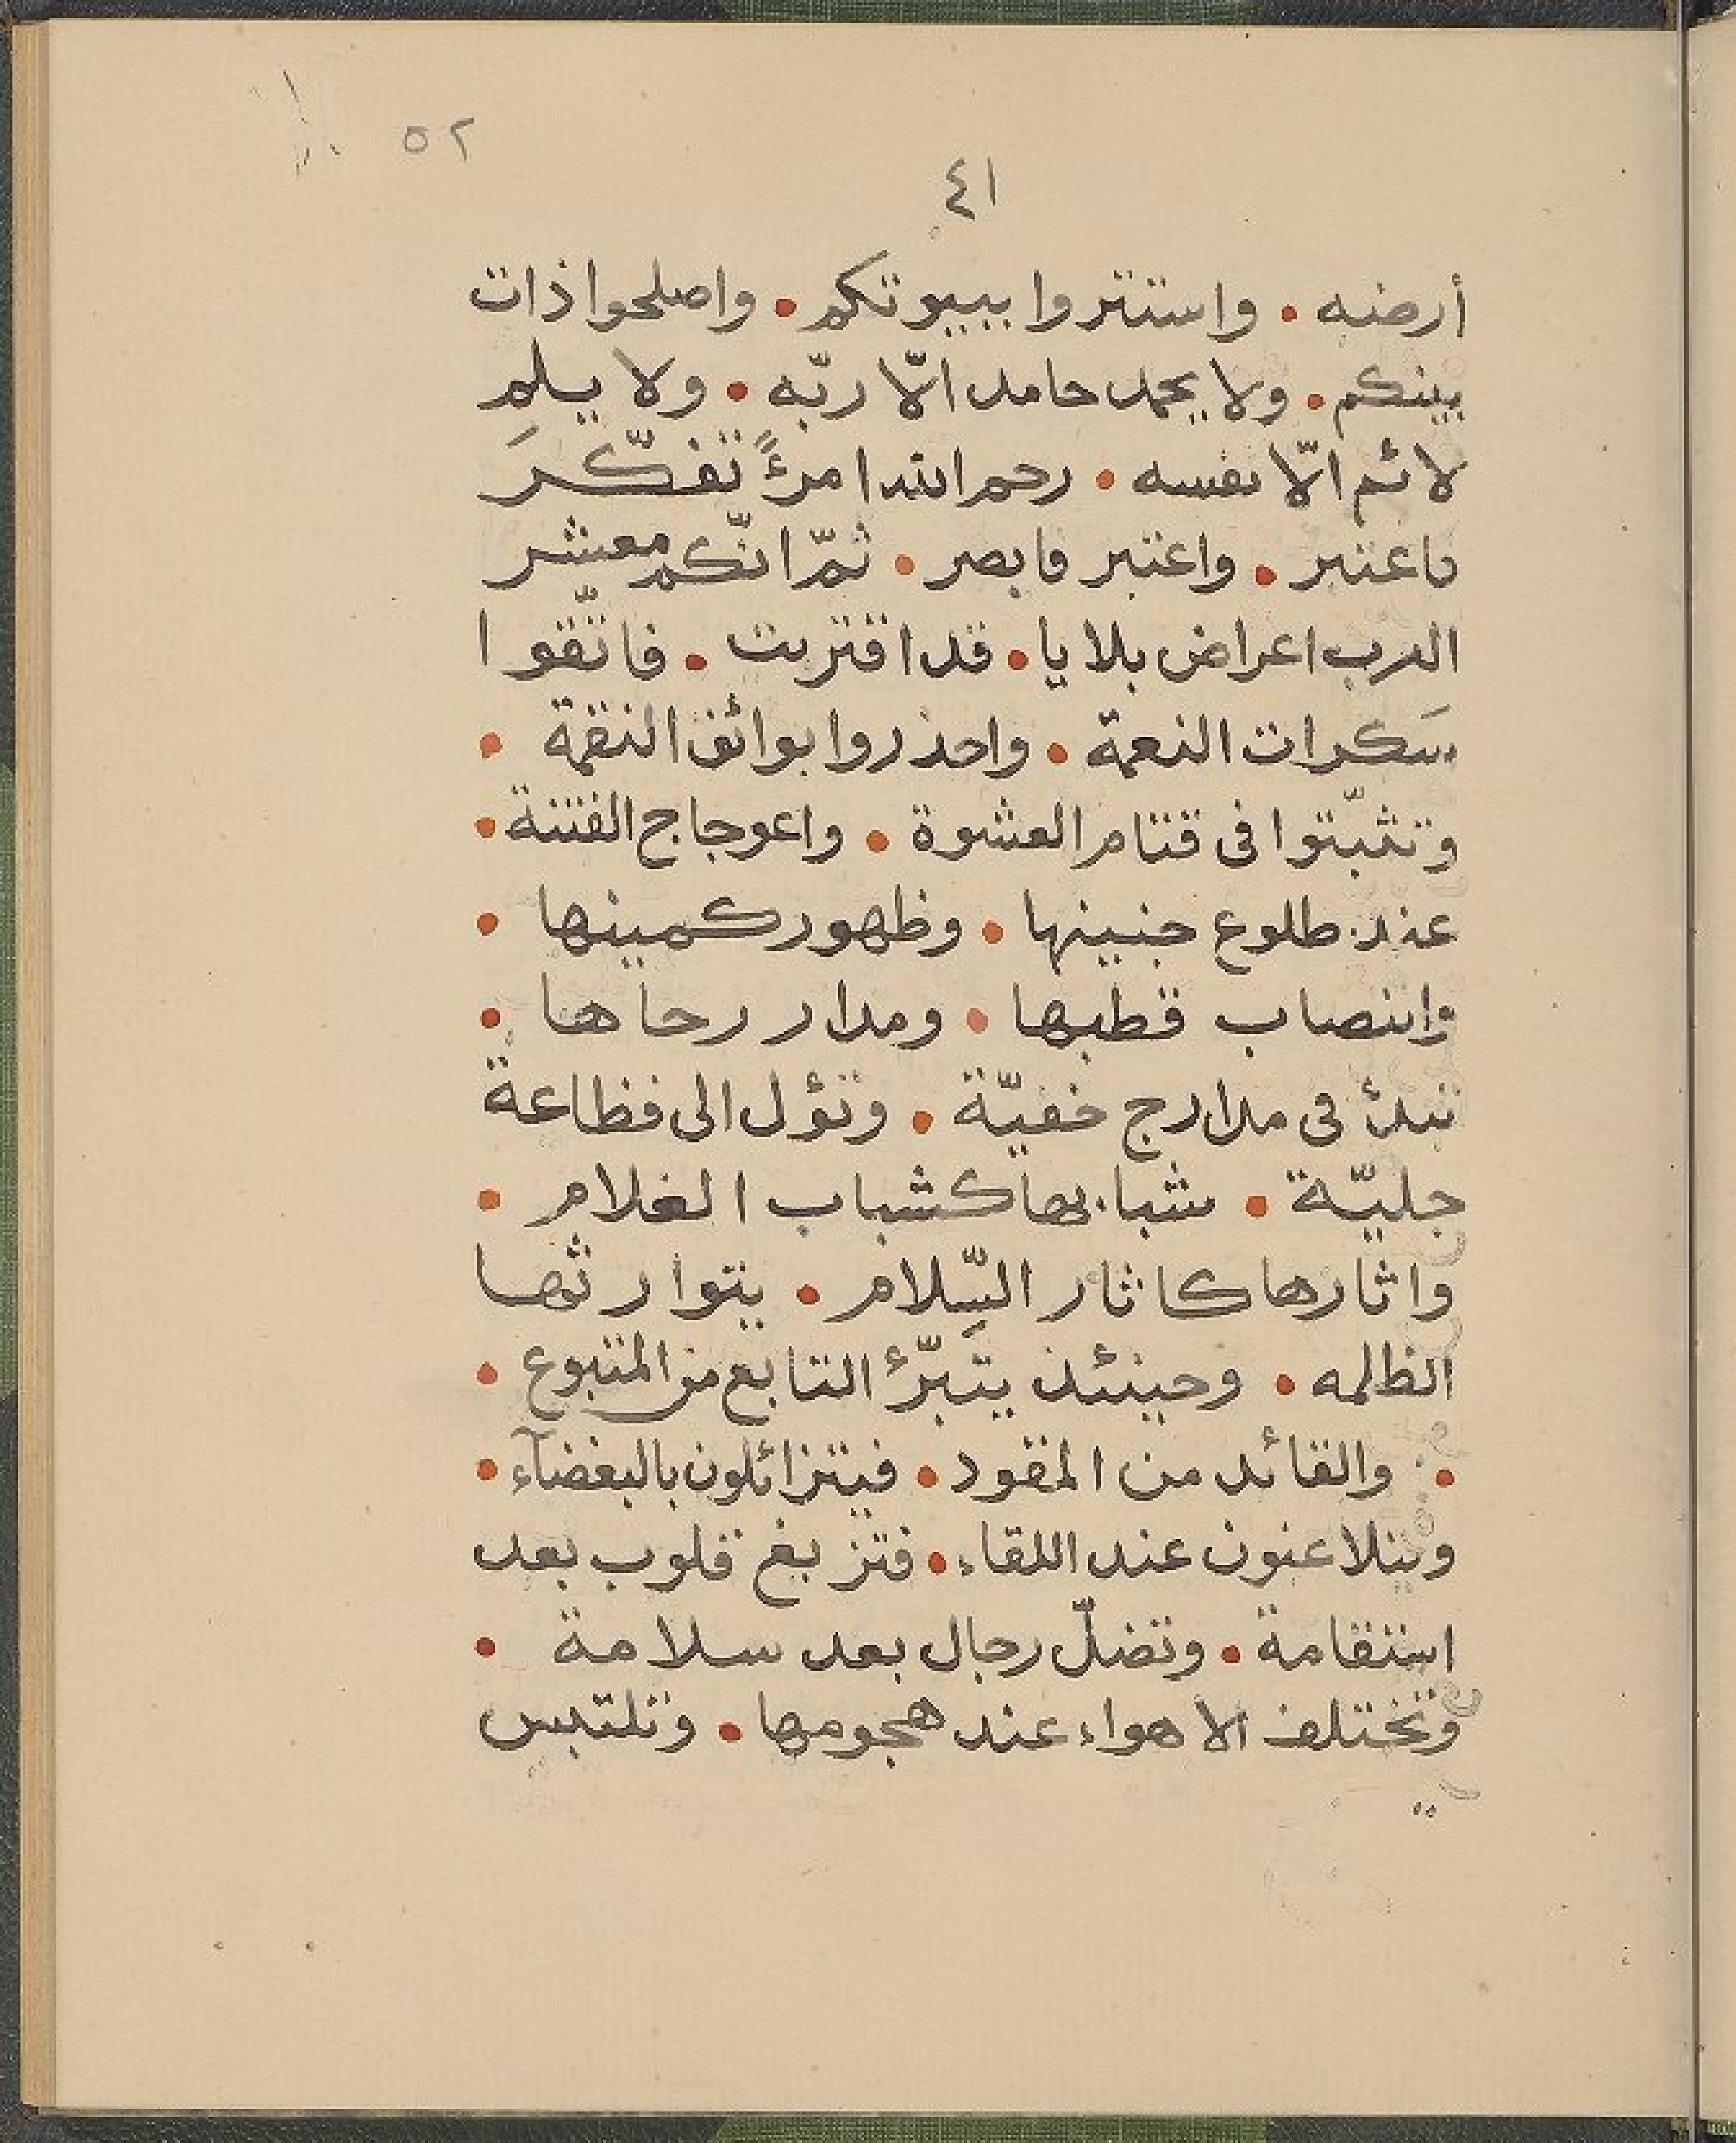 ٥٢
٤١
أرضه • واستتروا ببيوتكم • واصلحوا ذات
بينكم • ولا يحمد حامد الّا ربّه • ولا يلمِ
لائم الّا نفسه • رحم الله امرئً تفكّرَ
فاعتبر • واعتبر فابصر • ثمّ انّكم معشر
العرب اعراض بلايا • قد اقتربت • فاتّقوا
سَكرات النعمة • واحذروا بوائق النقمة •
وتثبّتوا فى قتام العشوة • واعوجاج الفتنة •
عند طلوع جنينها • وظهور كمينها •
وانتصاب قطبها • ومدار رحاها •
تبدئ فى مدارج خفيّة • وتؤل الى فظاعة
جليّة • شبابها كشباب الغلام •
واثارها كاثار السِّلام • يتوارثها
الظلمه • وحينئذ يتبرّئ التابع من المتبوع •
• والقائد من المقود • فيتزائلون بالبغضآء •
ويتلاعنون عند اللقاء • فتزيغ قلوب بعد
استقامة • وتضلّ رجال بعد سلامة •
وتختلف الاهواء عند هجومها • وتلتبس